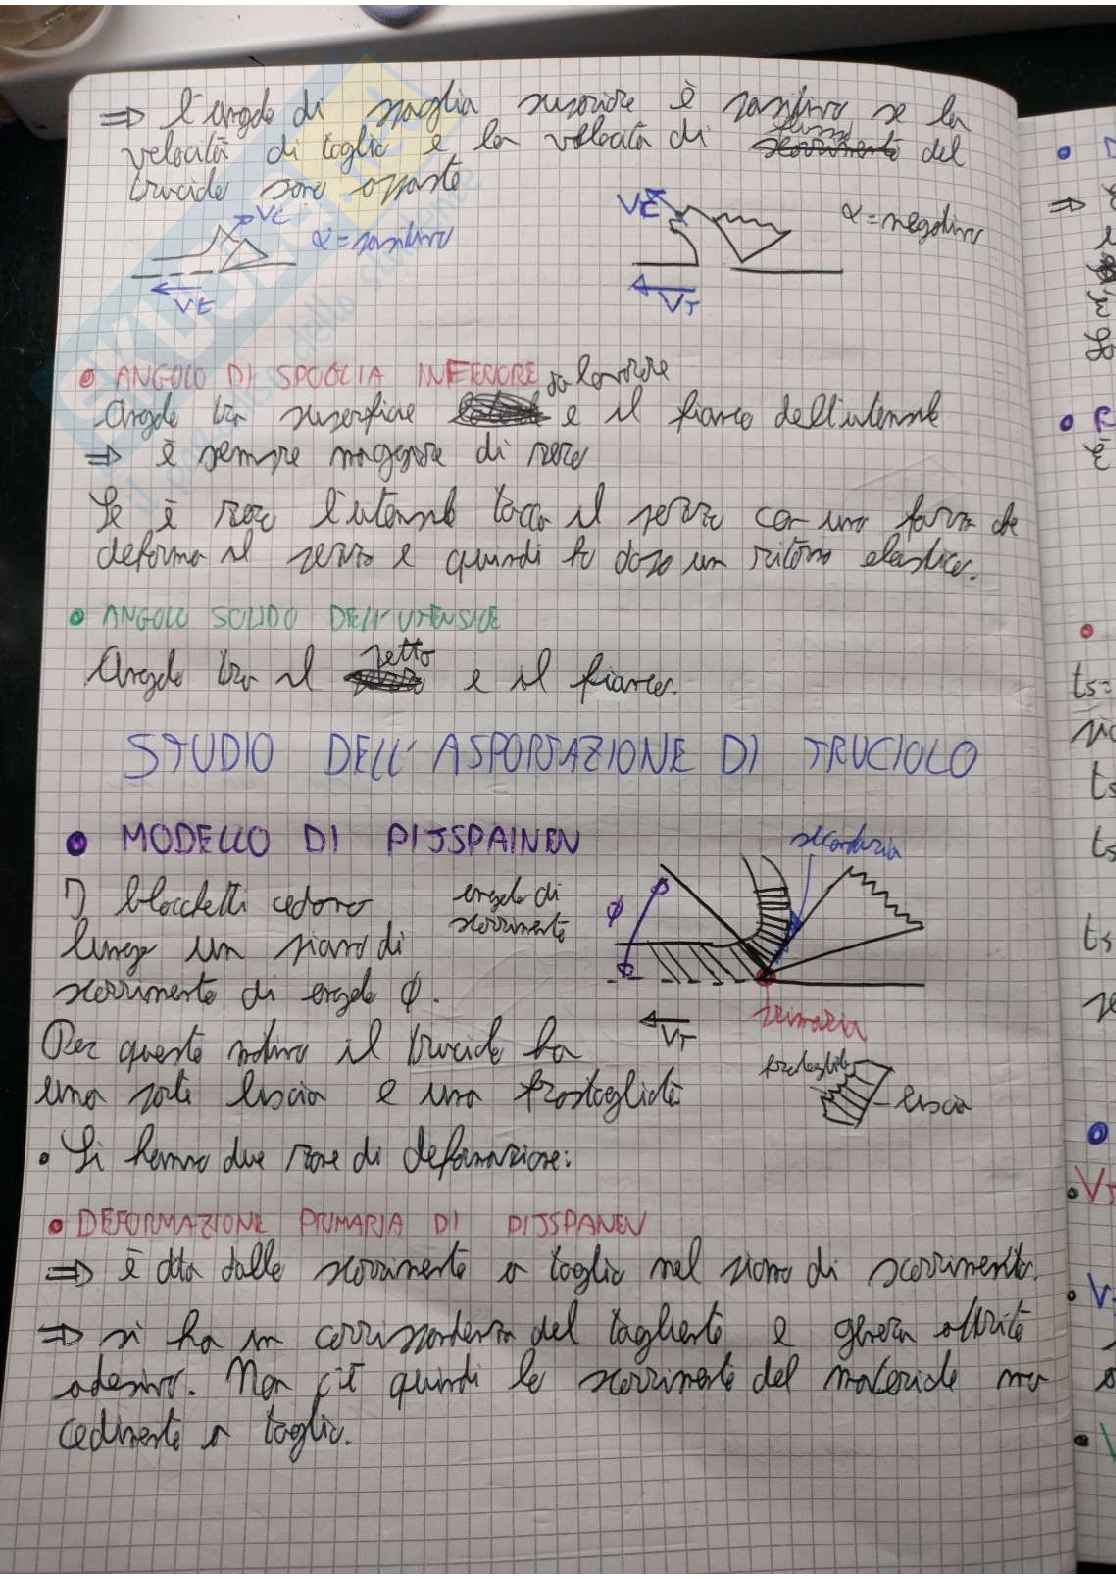 ⇒ l'angolo di spoglia superiore è positivo se la
velocità di taglio e la velocità di flusso del
truciolo sono opposte
Vt
α = positivo
Vt
Vt
α = negativo
VT
• ANGOLO DI SPOGLIA INFERIORE
da lavorare
Angolo tra superficie e il fianco dell'utensile
⇒ è sempre maggiore di zero
Se è zero l'utensile tocca il pezzo con una forza che
deforma il pezzo e quindi fa dopo un ritorno elastico.
• ANGOLO SOLIDO DELL'UTENSILE
Angolo tra il petto e il fianco.
STUDIO DELL'ASPORTAZIONE DI TRUCIOLO
• MODELLO DI PIJSPAINEN
secondaria
I blocchetti cedono
angolo di
scorrimento
ϕ
lungo un piano di
scorrimento di angolo ϕ.
primaria
VT
Per questo motivo il truciolo ha
una parte liscia e una frastagliata
frastagliata
liscia
• Si hanno due zone di deformazione:
• DEFORMAZIONE PRIMARIA DI PIJSPANEN
⇒ è data dallo scorrimento a taglio nel piano di scorrimento.
⇒ si ha in corrispondenza del tagliente e genera attrito
adesivo. Non c'è quindi lo scorrimento del materiale ma
cedimento a taglio.
ts=
ts
ts
ts
VT